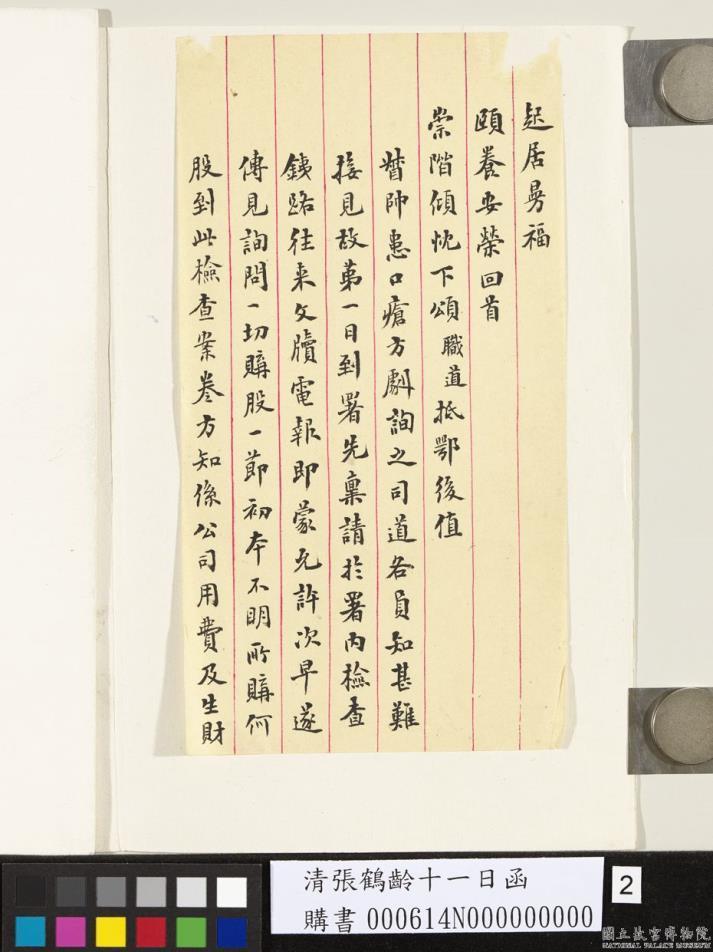 起居曼福
頤養安榮回首
崇階傾忱下頌職道抵鄂後值
督帥患口瘡方劇詢之司道各員知甚難
接見故第一日到署先稟請於署內檢查
鐵路往來文牘電報即蒙允許次早遂
傳見詢問一切購股一節初本不明所購何
股到此檢查案卷方知係公司用費及生財
清張鶴齡十一日函
購書000614N000000000
2
國立故宮博物院
NATIONAL PALACE MUSEUM